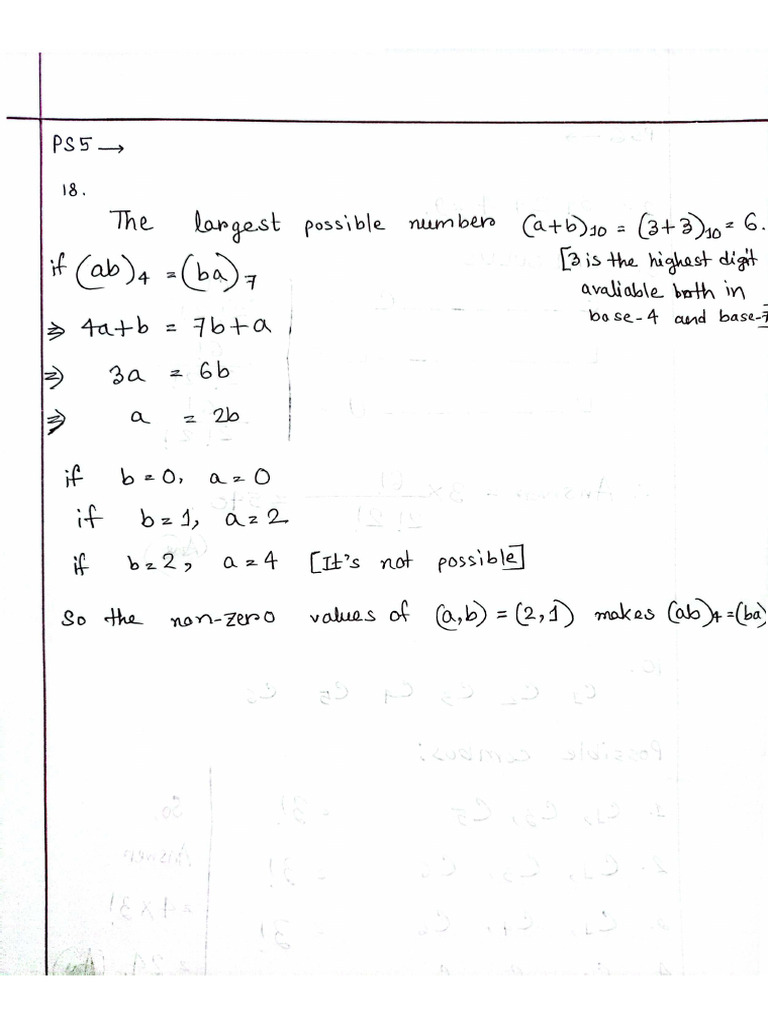 PS5 →
18.
The largest possible number (a+b)₁₀ = (3+3)₁₀ = 6.
[3 is the highest digit
avaliable both in
base-4 and base-7
if (ab)₄ = (ba)₇
⇒ 4a+b = 7b+a
⇒ 3a = 6b
⇒ a = 2b
if b=0, a=0
if b=1, a=2
if b=2, a=4 [It's not possible]
So the non-zero values of (a,b) = (2,1) makes (ab)₄=(ba)